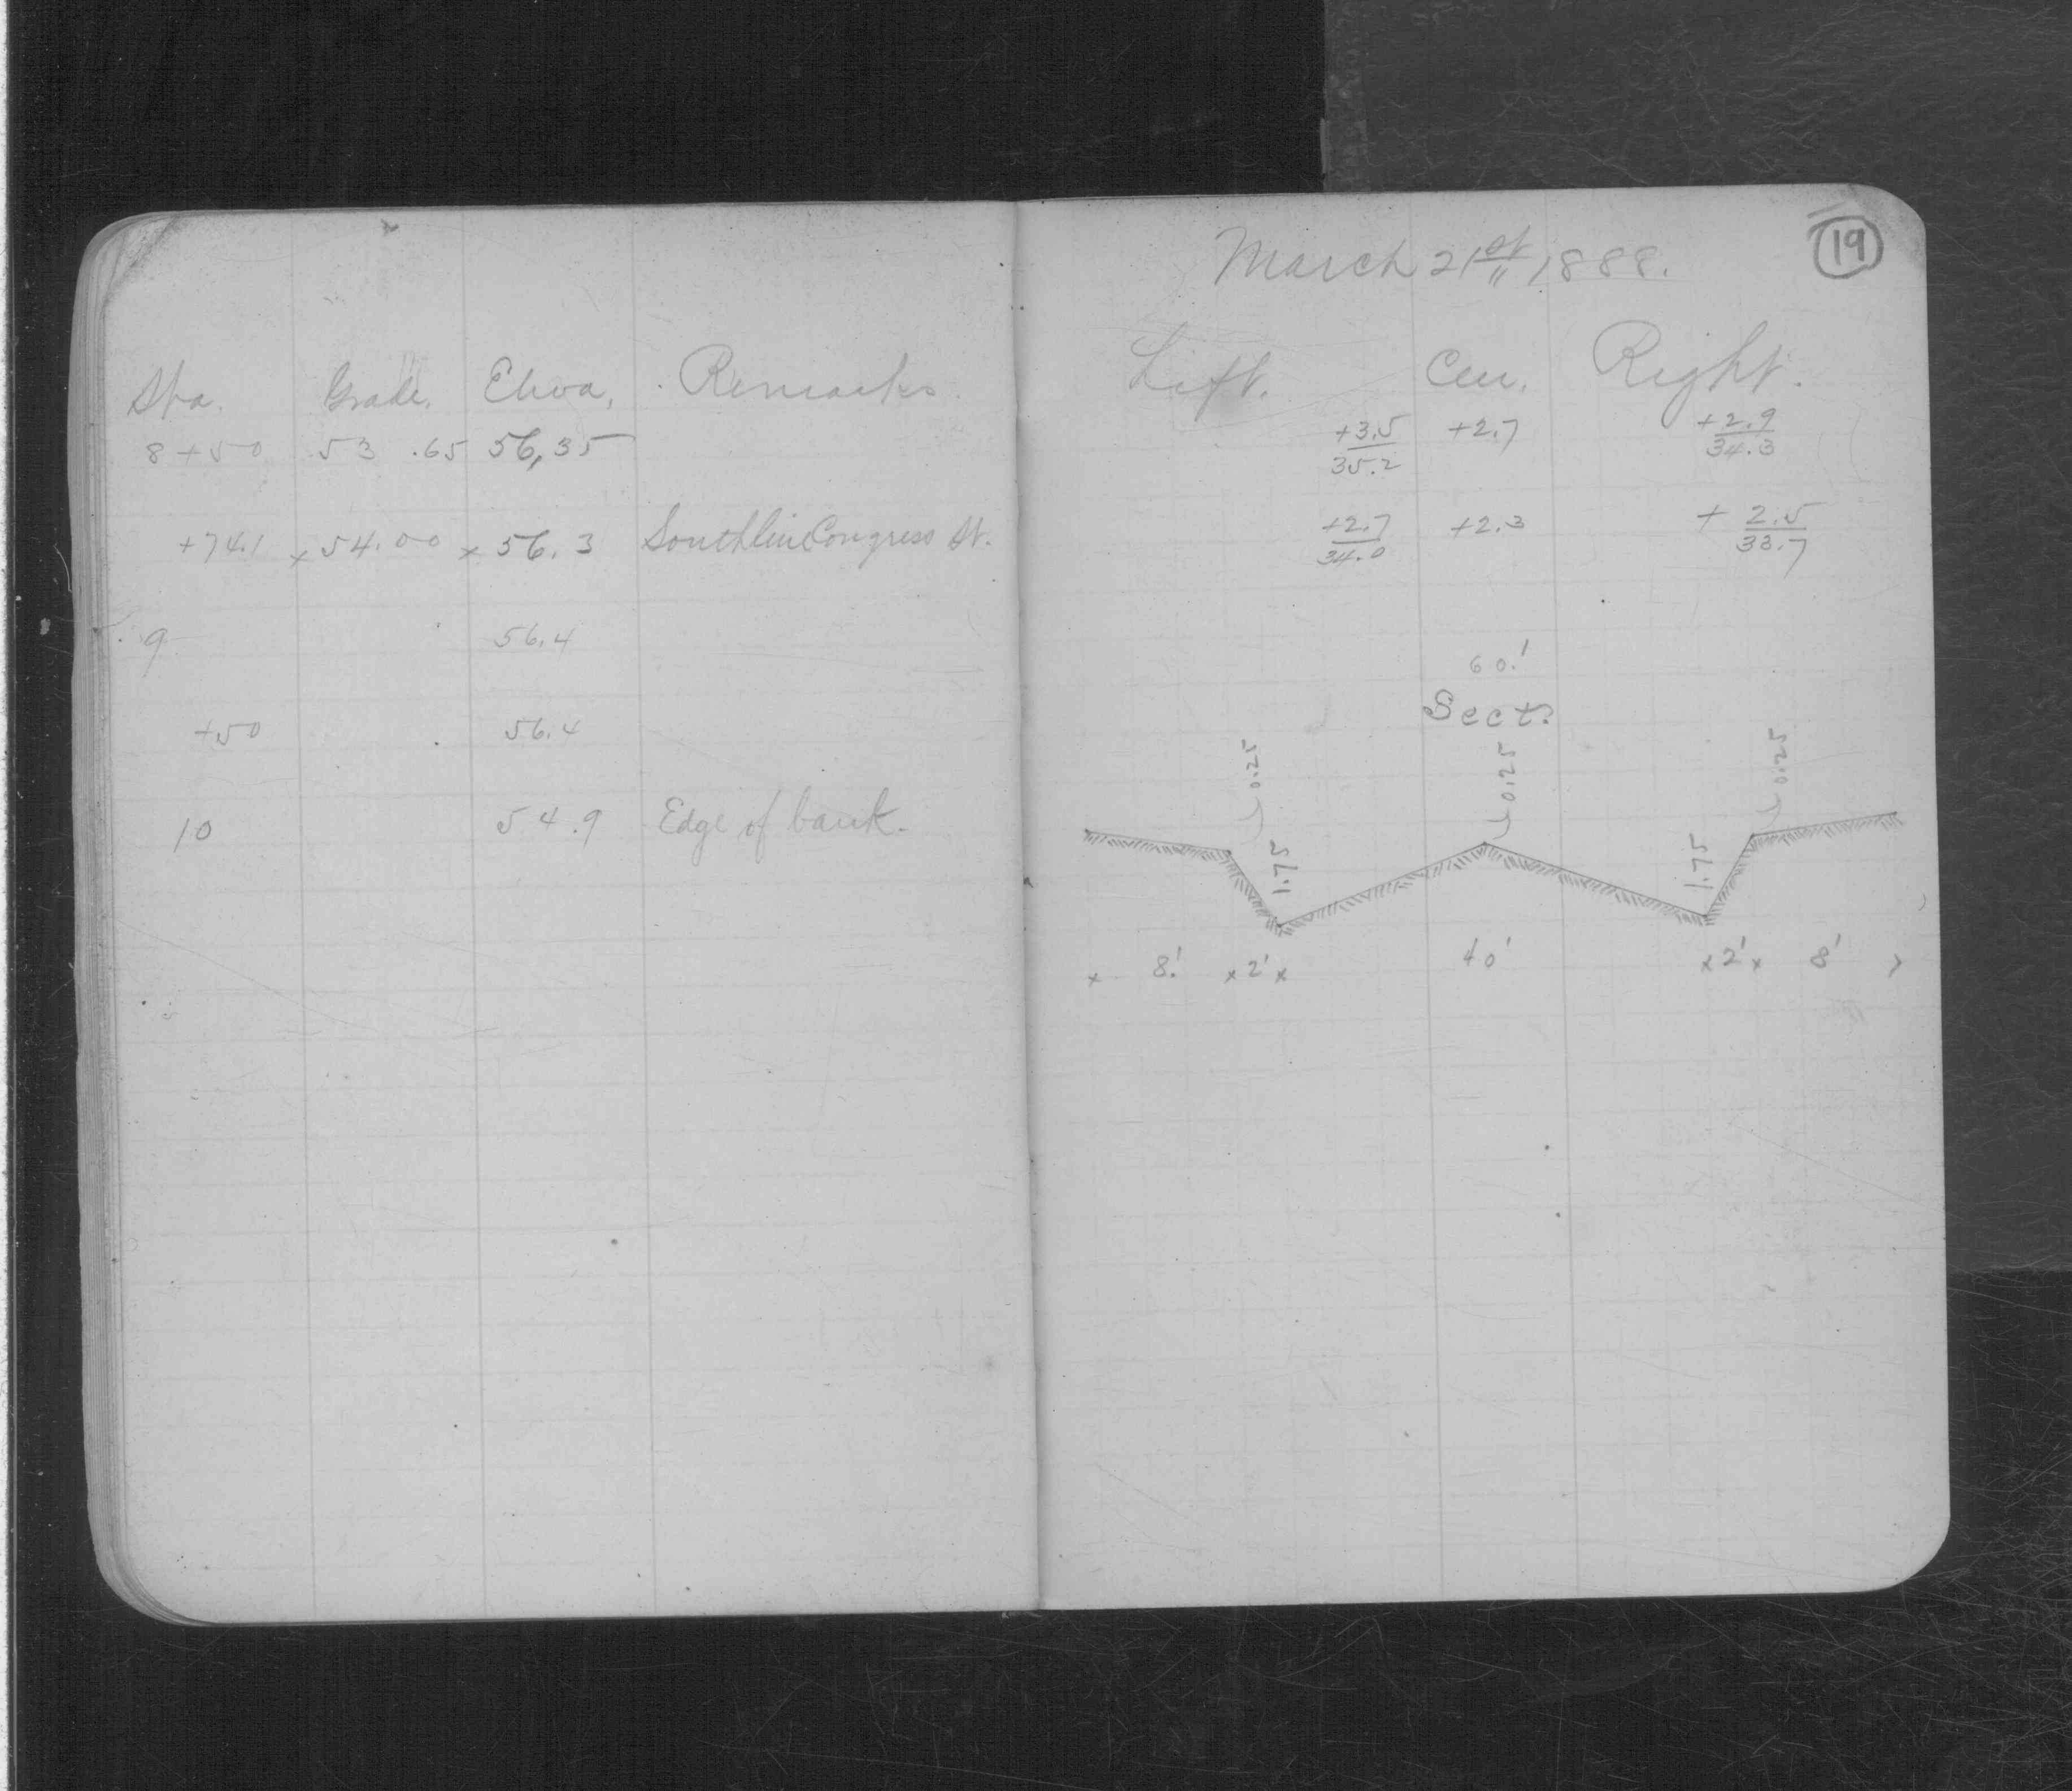 Sta. Grade. Eleva. Remarks.
8+50 53 .65 56,35
+74.1 x 54.00 x 56.3 South line Congress St.
9 56.4
+50 56.4
10 54.9 Edge of bank.
19
March 21st 1888.
Left. Cen. Right.
+3.5 +2.7 +2.9
35.2 34.3
+2.7 +2.3 + 2.5
34.0 33.7
60.'
Sect.
0.25 0.25 0.25
1.75 1.75
x 8.' x 2' x 40' x 2' x 8'